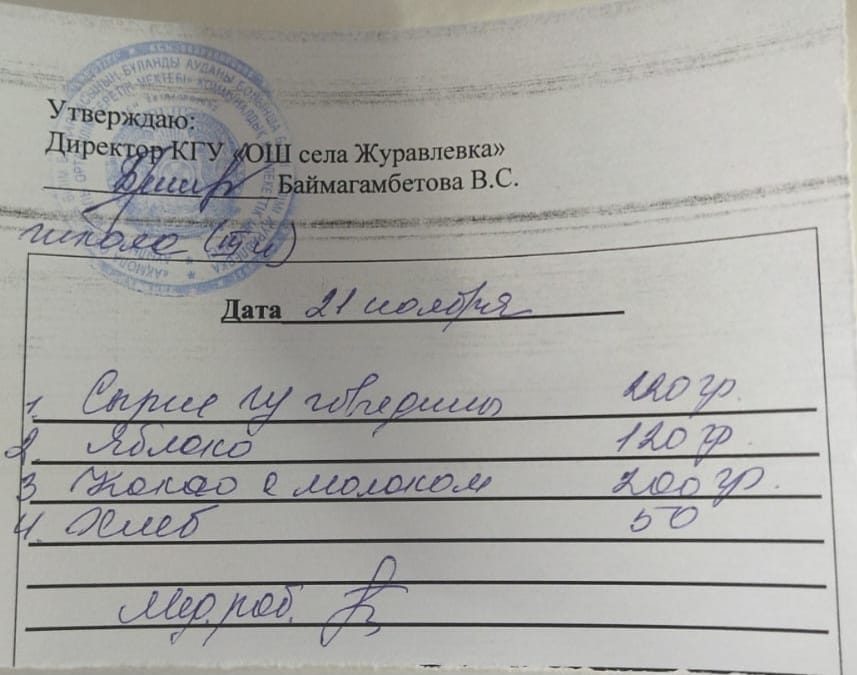 Утверждаю:
Директор КГУ «ОШ села Журавлевка»
Баймагамбетова В.С.
школа (
Дата 21 ноября
1. говядины 220 гр.
2. Яблоко 120 гр.
3 Какао с молоком 200 гр.
4. Хлеб 50
Мед. раб.